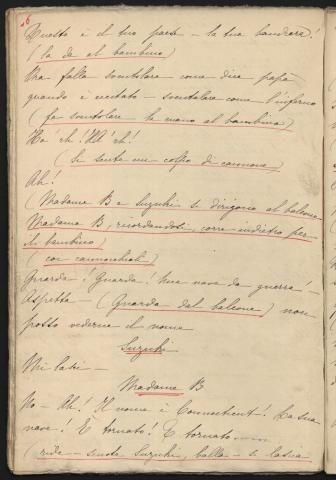 26
Questo è il tuo paese – la tua bandiera!
(la dà al bambino)
Ma falla sventolare come dice papà
quando è eccitato – sventolare come l'inferno
(fa sventolare la mano al bambino)
Ha'rh! Ha'rh!
(Si sente un colpo di cannone)
Ah!
(Madame B e Suzuki si dirigono al balcone
Madame B, ricordandosi, corre indietro per
il bambino)
(coi cannocchiali)
Guarda! Guarda! Una nave da guerra! –
Aspetta – (Guarda dal balcone) non
posso vederne il nome
Suzuki
Mi lasci –
Madame B
No – Ah! Il nome è Connecticut! La sua
nave! È tornato! È tornato
(ride – scuote Suzuki, balla – si lascia